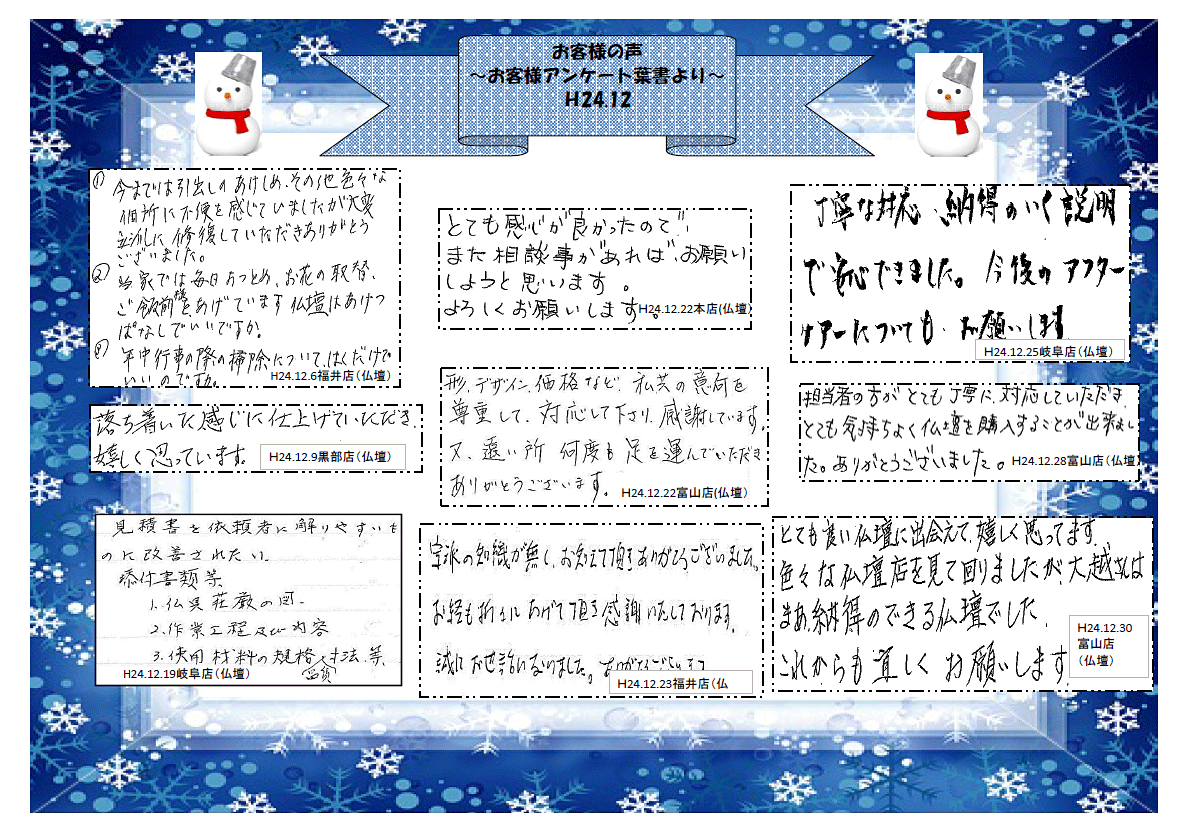 お客様の声
～お客様アンケート葉書より～
H24.12
① 今までは引出しのあけしめ、その他色々な
個所に不便を感じていましたが大変
立派に修復していただきありがとう
ございました。
② 当家では毎日おつとめ、お花の取替、
ご飯前様をあげています 仏壇はあけっ
ぱなしでいいですか。
年中行事の際の掃除については、はくだけで
いいのですか。
H24.12.6福井店（仏壇）
落ち着いた感じに仕上げていただき、
嬉しく思っています。
H24.12.9黒部店（仏壇）
見積書を依頼者に解りやすいも
のに改善されたい。
添付書類等
1.仏具荘厳の図.
2.作業工程及び内容
3.使用材料の規格、寸法、等、
H24.12.19岐阜店（仏壇）
とても感じが良かったので
また相談事があれば、お願い
しようと思います。
よろしくお願いします。
H24.12.22本店(仏壇）
形、デザイン、価格など、私共の意向を
尊重して、対応して下さり、感謝しています。
又、遠い所 何度も足を運んでいただき
ありがとうございます。
H24.12.22富山店(仏壇）
宗派の知識が無く、お教えて頂きありがとうございました。
お経も折々にあげて頂き感謝いたしております。
誠にお世話になりました。ありがとうございます
H24.12.23福井店（仏
丁寧な対応、納得のいく説明
で安心できました。今後のアフター
ケアーについても、お願いします
H24.12.25岐阜店（仏壇）
担当者の方がとても丁寧に対応していただき、
とても気持ちよく仏壇を購入することが出来まし
た。ありがとうございました。
H24.12.28富山店（仏壇）
とても良い仏壇に出会えて、嬉しく思ってます。
色々な仏壇店を見て回りましたが、大越さんは
まあ納得のできる仏壇でした。
これからも宜しくお願いします。
H24.12.30
富山店
（仏壇）